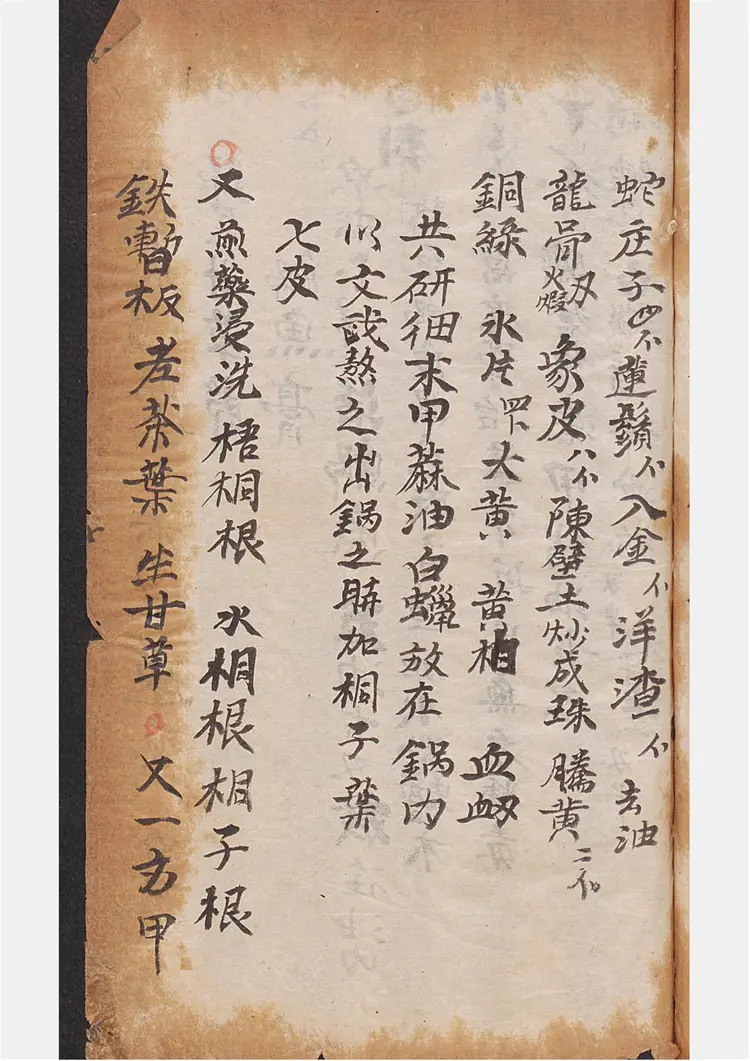 蛇庄子四不蓮鬚不入金不洋渣一不去油
龍骨火煅象皮八不陳壁土炒成珠騰黃二不
銅綠 氷片四下大黃 黃柏 血
共研細末甲蔴油白蠟放在鍋內
以文武熬之出鍋之時加桐子葉
七皮
又煎藥燙洗梧桐根 水桐根桐子根
鉄板老茶葉 生甘草 又一方甲